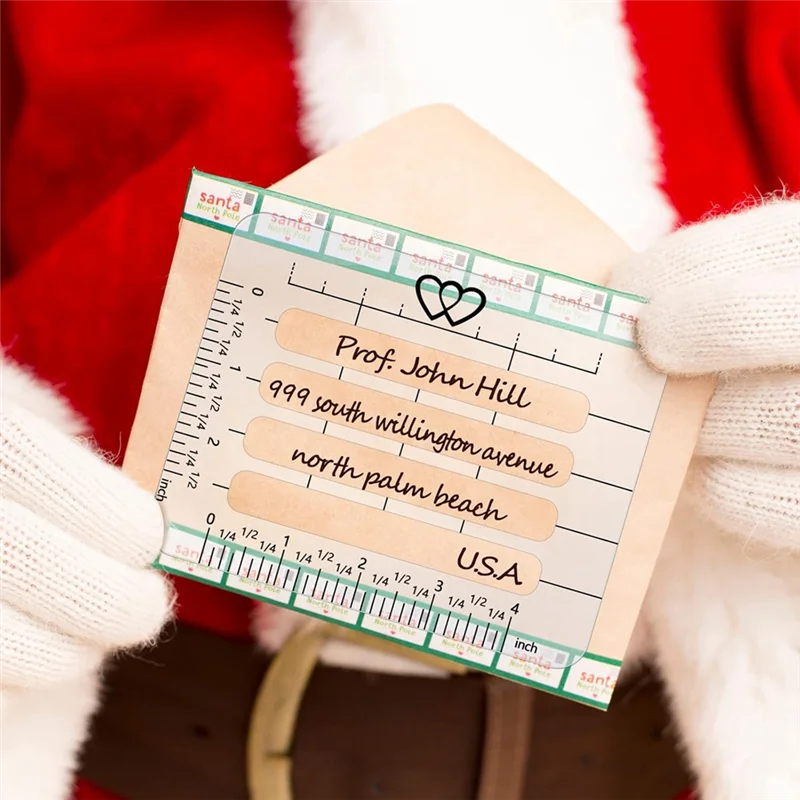 santa North Pole santa North Pole santa North Pole santa North Pole santa santa santa
Prof. John Hill
999 south willington avenue
north palm beach
U.S.A
0 1/4 1/2 1/4 1 1/4 1/2 1/4 2 1/4 1/2 inch
0 1/4 1/2 1/4 1 1/4 1/2 1/4 2 1/4 1/2 1/4 3 1/4 1/2 1/4 4 inch
santa North Pole North Pole North Pole North Pole santa North Pole santa North Pole